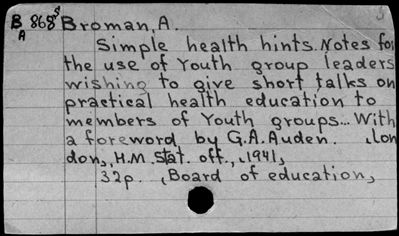 B 868s Broman, A.
A
Simple health hints. Notes for
the use of Youth group leaders
wishing to give short talks on
practical health education to
members of Youth groups... With
a foreword by G.A. Auden. Lon
don, H.M. Stat. off., 1941,
32p. , Board of education,